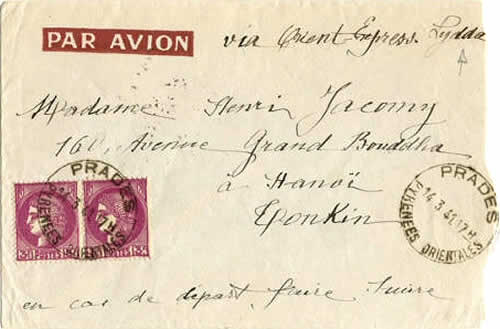 PAR AVION via Orient Express Lydda
Madame Henri Jacomy
160, Avenue Grand Bouddha
à Hanoï
Tonkin
PRADES
14 3 41 17 H
PYRENEES ORIENTALES
PRADES
14 3 41 17 H
PYRENEES ORIENTALES
POSTES
POSTES
en cas de départ faire suivre